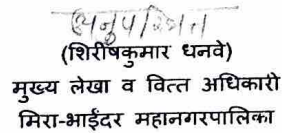 अनुपस्थित
(शिरीषकुमार धनवे)
मुख्य लेखा व वित्त अधिकारी
मिरा-भाईंदर महानगरपालिका